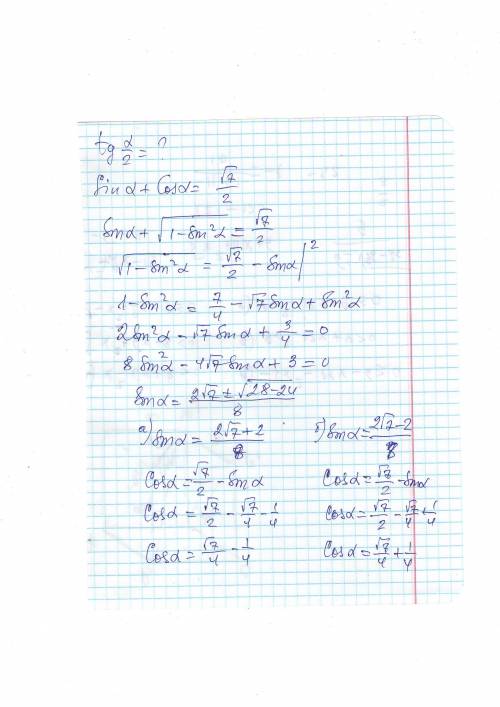 tg α/2 = ?
Sin α + Cos α = √7/2
Sin α + √(1 - Sin²α) = √7/2
√(1 - Sin²α) = √7/2 - Sin α |²
1 - Sin²α = 7/4 - √7 Sin α + Sin²α
2 Sin²α - √7 Sin α + 3/4 = 0
8 Sin²α - 4√7 Sin α + 3 = 0
Sin α = (2√7 ± √(28-24))/8
а) Sin α = (2√7 + 2)/8 б) Sin α = (2√7 - 2)/8
Cos α = √7/2 - Sin α Cos α = √7/2 - Sin α
Cos α = √7/2 - √7/4 - 1/4 Cos α = √7/2 - √7/4 + 1/4
Cos α = √7/4 - 1/4 Cos α = √7/4 + 1/4